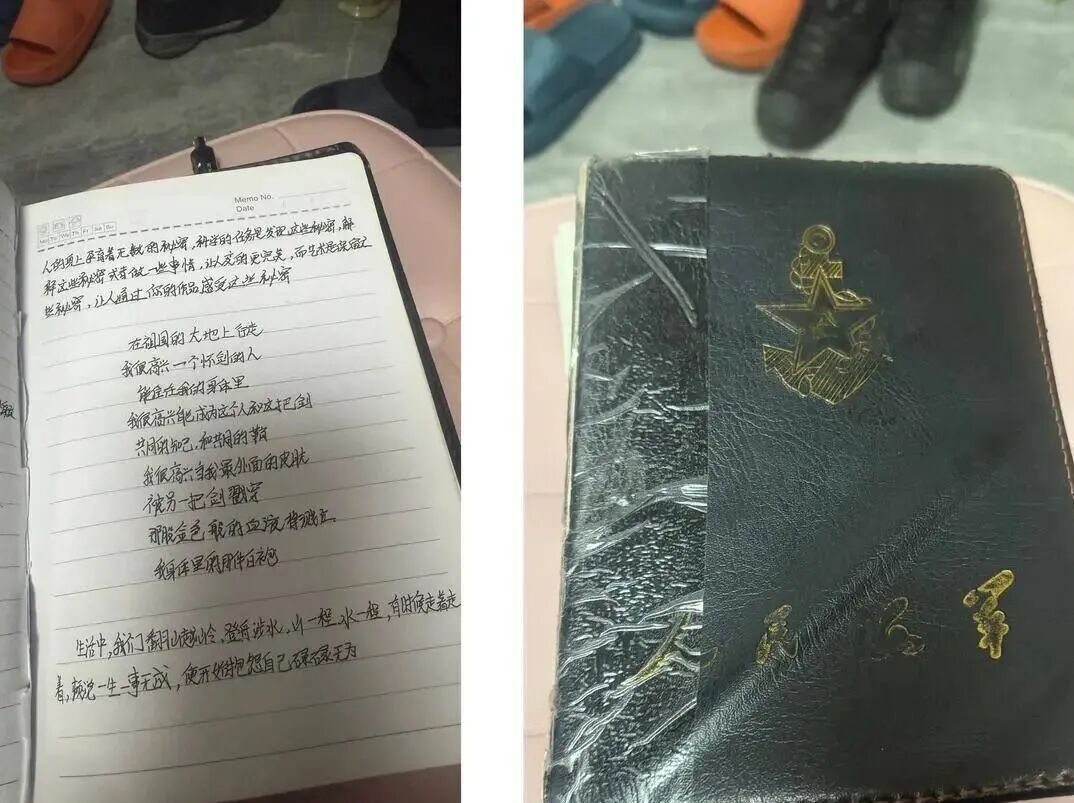 Memo No.
Date
Mo Tu We Th Fr Sa Su
人的身上孕育着无数的秘密，科学的任务是发现这些秘密，解
解这些秘密或者做一些事情，让人变的更完美，而艺术是保留这
些秘密，让人通过你的作品感受这些秘密
在祖国的大地上行走
我很高兴一个怀剑的人
能住在我的身体里
我很高兴能成为这个人和这把剑
共同的知己，和共同的鞘
我很高兴当我最外面的皮肤
被另一把剑戳穿
那股金色般的血液将溅在
我身体里的那件白袍
生活中，我们翻山越岭，登舟涉水，山一程，水一程，有时候走着走
着，颇说一生一事无成，便开始抱怨自己碌碌无为
人民海军